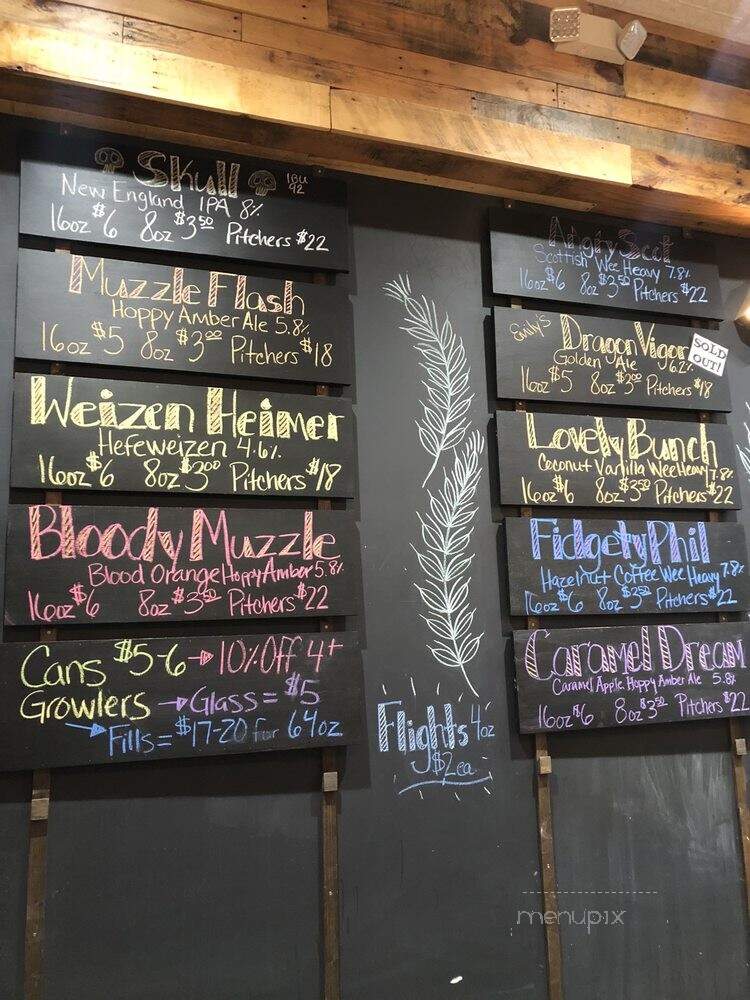 Skull
IBU
92
New England IPA 8%
16oz $6 8oz $3.50 Pitchers $22
Muzzle Flash
Hoppy Amber Ale 5.8%
16oz $5 8oz $3.00 Pitchers $18
Weizen Heimer
Hefeweizen 4.6%
16oz $6 8oz $3.00 Pitchers $18
Bloody Muzzle
Blood Orange Hoppy Amber 5.8%
16oz $6 8oz $3.50 Pitchers $22
Cans $5-6 → 10% Off 4+
Growlers → Glass = $5
→ Fills = $17-20 for 64oz
Flights 4oz
$2 ea
Angry Scot
Scottish Wee Heavy 7.8%
16oz $6 8oz $3.50 Pitchers $22
Emily's Dragon Vigor
SOLD
OUT!
Golden Ale 6.2%
16oz $5 8oz $3.00 Pitchers $18
Lovely Bunch
Coconut Vanilla Wee Heavy 7.8%
16oz $6 8oz $3.50 Pitchers $22
Fidgety Phil
Hazelnut Coffee Wee Heavy 7.8%
16oz $6 8oz $3.50 Pitchers $22
Caramel Dream
Caramel Apple Hoppy Amber Ale 5.8%
16oz $6 8oz $3.50 Pitchers $22
menupix